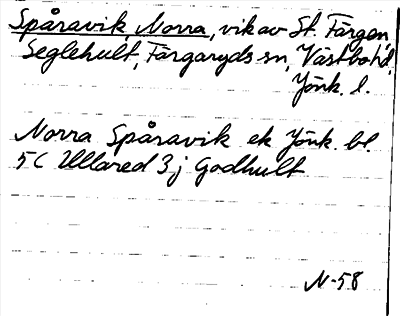 Spåravik, Norra, vik av St. Färgen,
Seglehult, Färgaryds sn, Västbo hd,
Jönk. l.
Norra Spåravik ek Jönk. bl.
5C Ullared 3j Godhult
N-58